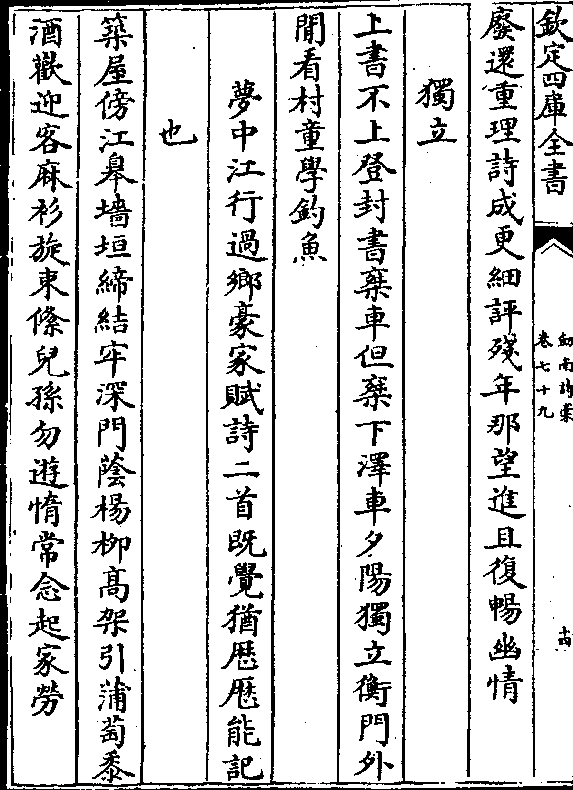 欽定四庫全書
劍南詩藁
卷七十九
十四
廢還重理詩成更細評殘年那望進且復暢幽情
獨立
上書不上登封書乗車但乗下澤車夕陽獨立衡門外
閒看村童學釣魚
夢中江行過鄉豪家賦詩二首既覺猶歴歴能記
也
築屋傍江臯墻垣締結牢深門蔭楊柳髙架引蒲萄黍
酒歡迎客麻衫旋束絛兒孫勿遊惰常念起家勞